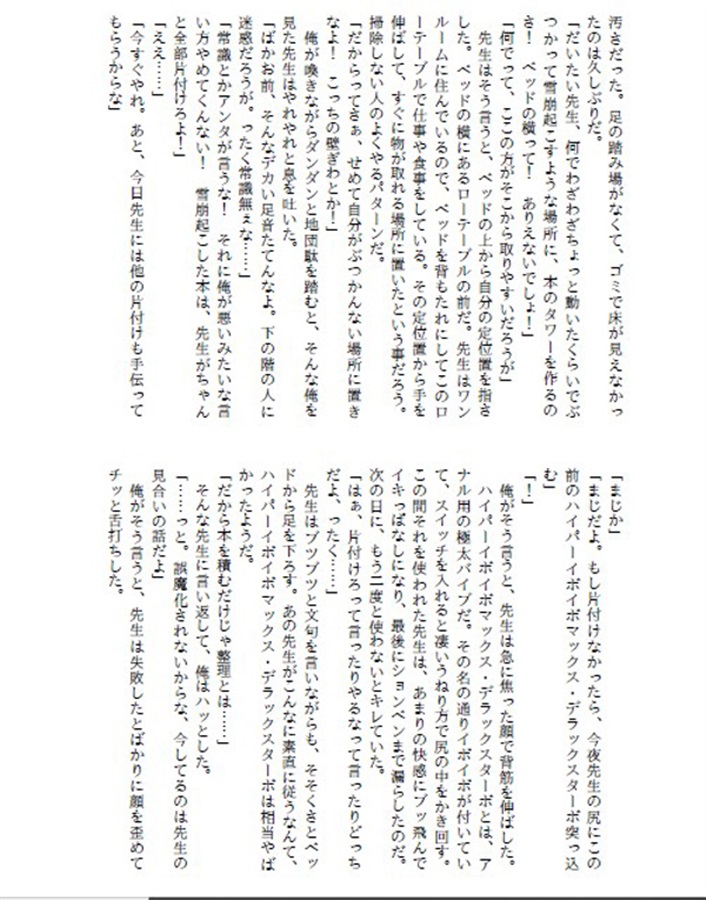 汚さだった。足の踏み場がなくて、ゴミで床が見えなかっ
たのは久しぶりだ。
「だいたい先生、何でわざわざちょっと動いたくらいでぶ
つかって雪崩起こすような場所に、本のタワーを作るの
さ！　ベッドの横って！　ありえないでしょ！」
「何でって、ここの方がそこから取りやすいだろうが」
　先生はそう言うと、ベッドの上から自分の定位置を指さ
した。ベッドの横にあるローテーブルの前だ。先生はワン
ルームに住んでいるので、ベッドを背もたれにしてこのロ
ーテーブルで仕事や食事をしている。その定位置から手を
伸ばして、すぐに物が取れる場所に置いたという事だろう。
掃除しない人のよくやるパターンだ。
「だからってさぁ、せめて自分がぶつかんない場所に置き
なよ！　こっちの壁ぎわとか！」
　俺が喚きながらダンダンと地団駄を踏むと、そんな俺を
見た先生はやれやれと息を吐いた。
「ばかお前、そんなデカい足音たてんなよ。下の階の人に
迷惑だろうが。ったく常識無ぇな……」
「常識とかアンタが言うな！　それに俺が悪いみたいな言
い方やめてくんない！　雪崩起こした本は、先生がちゃん
と全部片付けろよ！」
「ええ……」
「今すぐやれ。あと、今日先生には他の片付けも手伝って
もらうからな」
「まじか」
「まじだよ。もし片付けなかったら、今夜先生の尻にこの
前のハイパーイボイボマックス・デラックスターボ突っ込
む」
「！」
　俺がそう言うと、先生は急に焦った顔で背筋を伸ばした。
　ハイパーイボイボマックス・デラックスターボとは、ア
ナル用の極太バイブだ。その名の通りイボイボが付いてい
て、スイッチを入れると凄いうねり方で尻の中をかき回す。
この間それを使われた先生は、あまりの快感にブッ飛んで
イキっぱなしになり、最後にションベンまで漏らしたのだ。
次の日に、もう二度と使わないとキレていた。
「はぁ、片付けろって言ったりやるなって言ったりどっち
だよ、ったく……」
　先生はブツブツと文句を言いながらも、そそくさとベッ
ドから足を下ろす。あの先生がこんなに素直に従うなんて、
ハイパーイボイボマックス・デラックスターボは相当やば
かったようだ。
「だから本を積むだけじゃ整理とは……」
　そんな先生に言い返して、俺はハッとした。
「……っと。誤魔化されないからな、今してるのは先生の
見合いの話だよ」
　俺がそう言うと、先生は失敗したとばかりに顔を歪めて
チッと舌打ちした。